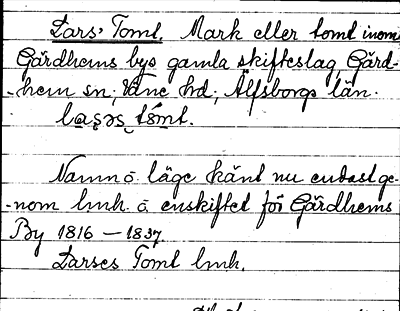 Lars' Tomt, Mark eller tomt inom
Gärdhems bys gamla skifteslag, Gärd-
-hem sn, Väne hd, Älfsborgs län.
Namn o. läge känt nu endast ge-
-nom lmh. o. enskiftet för Gärdhems
By 1816 — 1837
Larses Tomt lmh.